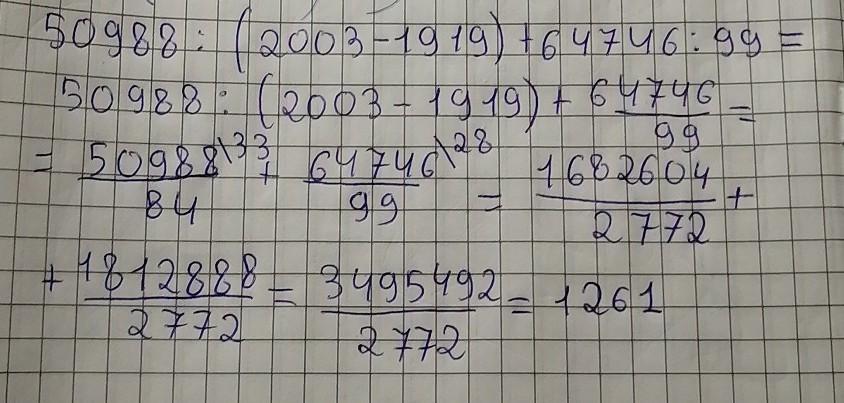 50988 : (2003-1919)+64746 : 99 =
50988 : (2003-1919)+ 64746/99 =
= 50988\33/84 + 64746\28/99 = 1682604/2772 +
+ 1812888/2772 = 3495492/2772 = 1261